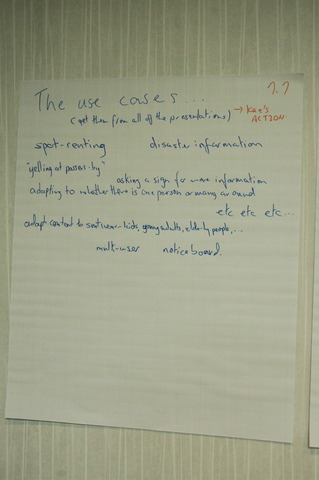 7.7
The use cases...
(get them from all of the presentations) → Kaz's ACTION
spot-renting disaster information
"yelling at passers-by"
asking a sign for more information
adapting to whether there is one person or many around
etc etc etc...
adapt content to kids, young adults, elderly people,...
multi-user noticeboard.